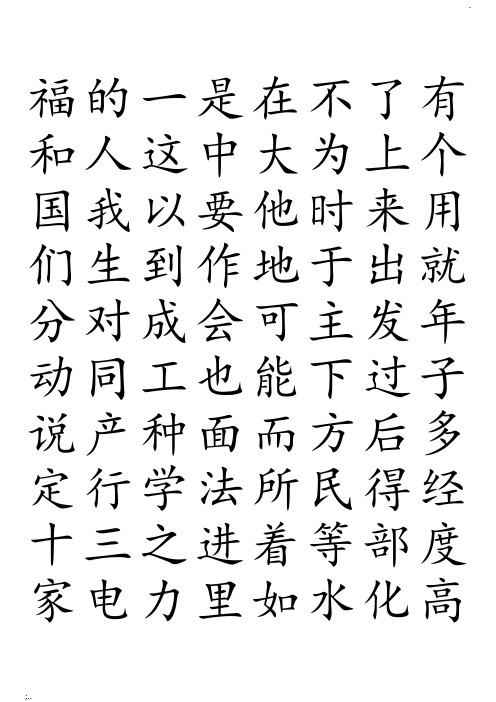 福的一是在不了有
和人这中大为上个
国我以要他时来用
们生到作地于出就
分对成会可主发年
动同工也能下过子
说产种面而方后多
定行学法所民得经
十三之进着等部度
家电力里如水化高
;..